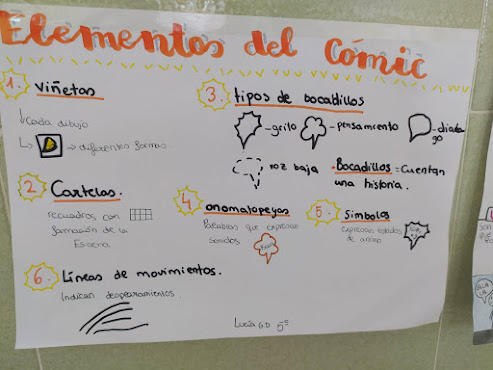 Elementos del Cómic
1. viñetas
Cada dibujo
→ diferentes formas
2. Cartelas.
recuadros con
formación de la
Escena.
3. tipos de bocadillos
-grito
-pensamiento
-diálogo
voz baja
· Bocadillos = Cuentan
una historia.
4. onomatopeyas
Palabras que expresan
sonidos
5. Simbolos
expresan estados
de animo
6. Líneas de movimientos.
Indican desplazamientos.
Lucía G.D 5º